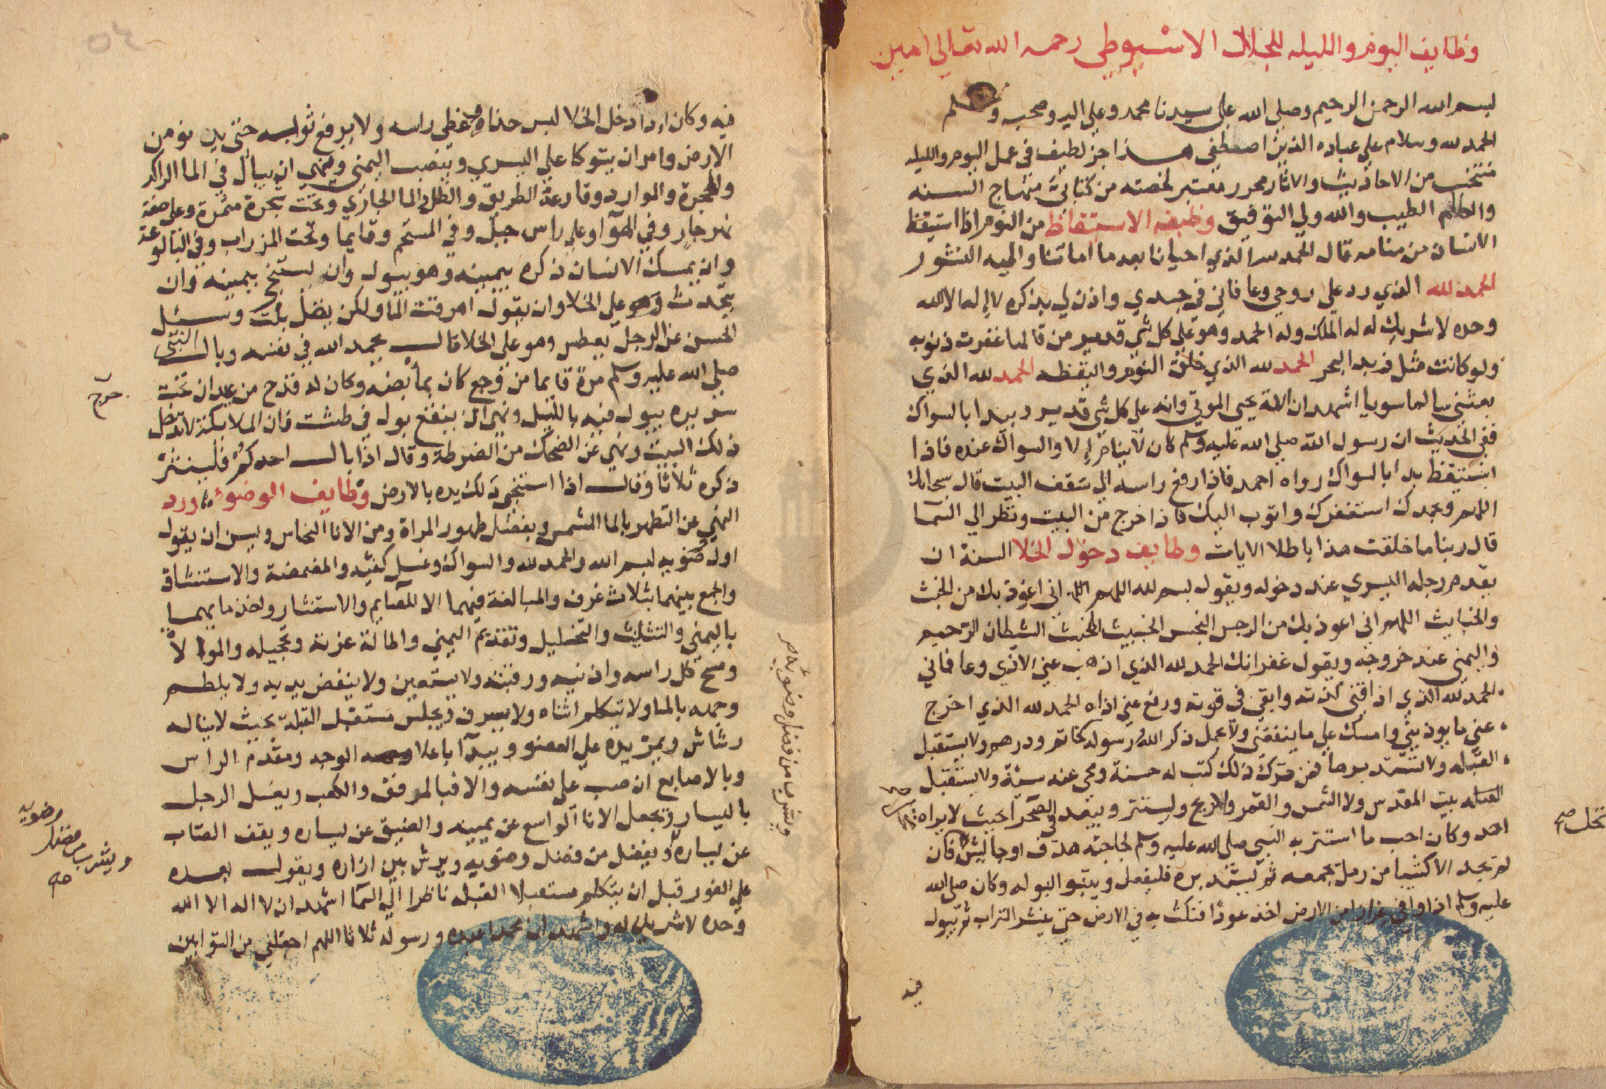 وظايف اليوم والليله للجلال الاسيوطي رحمه الله تعالي امين
بسم الله الرحمن الرحيم وصلي الله علي سيدنا محمد وعلي اله وصحبه وسلم
الحمد لله وسلام علي عباده الذين اصطفي هذا جز لطيف في عمل اليوم والليله
منتخب من الاحاديث والاثار محرر معتبر لخصته من كتابي منهاج السنه
والكلم الطيب والله ولي التوفيق وظيفه الاستيقاظ من النوم اذا استيقظ
الانسان من منامه قال الحمد لله الذي احيانا بعد ما اماتنا واليه النشور
الحمد لله الذي رد علي روحي وعافاني في جسدي واذن لي بذكره لا اله الا الله
وحده لا شريك له له الملك وله الحمد وهو علي كل شي قدير من قالها غفرت ذنوبه
ولو كانت مثل زبد البحر الحمد لله الذي خلق النوم واليقظه الحمد لله الذي
بعثني سالما سويا اشهد ان الله يحيي الموتي وانه علي كل شي قدير ويبدا بالسواك
ففي الحديث ان رسول الله صلي الله عليه وسلم كان لا ينام الا والسواك عنده فاذا
استيقظ بدا بالسواك رواه احمد فاذا رفع راسه الي سقف البيت قال سبحانك
اللهم وبحمدك استغفرك واتوب اليك فاذا خرج من البيت ونظر الي السما
قال ربنا ما خلقت هذا باطلا الايات وظايف دخول الخلا السنة ان
يقدم رجله اليسري عند دخوله ويقول بسم الله اللهم اني اعوذ بك من الخبث
والخبايث اللهم اني اعوذ بك من الرجس النجس الخبيث المخبث الشيطان الرجيم
واليمني عند خروجه ويقول غفرانك الحمد لله الذي اذهب عني الاذي وعافاني
الحمد لله الذي اذاقني لذته وابقي في قوته ودفع عني اذاه الحمد لله الذي اخرج
عني ما يوذيني وامسك علي ما ينفعني ولا يحمل ذكر الله ورسوله كخاتم ودرهم ولا يستقبل
القبله ولا يستدبرها فمن ترك ذلك كتب له حسنة ومحي عنه سئة ولا يستقبل
القبله بيت المقدس ولا الشمس والقمر والريح وليستتر ويبعد في الصحرا بحيث لا يراه
احد وكان احب ما استتر به النبي صلي الله عليه وسلم لحاجته هدف او حايش فان
لم يجد الا كثيبا من رمل جمعه ثم يستدبره فليفعل ويتبوا لبوله وكان صلي الله
عليه وسلم اذا وافي عزازا من الارض اخذ عودا فنكت به في الارض حتي ينشر التراب ثم يبول
فيه
فيه وكان اذا دخل الخلا لبس حذاه وغطي راسه ولا يرفع ثوبه حتي يدنو من
الارض وامر ان يتوكا علي اليسري وينصب اليمني ونهي ان يبال في الما الراكد
والجحرة والموارد وقارعة الطريق والظل والما الجاري وتحت شجرة مثمرة وعلي ضفة
نهر جار وفي الهوا وعلي راس جبل وفي المستحم وقايما وتحت المزراب وفي البالوعة
وان يمسك الانسان ذكره بيمينه وهو يبول وان يستنجي بيمينه وان
يتحدث وهو علي الخلا وان يقول اهرقت الما ولكن يقل بلت وسئل
الحسن عن الرجل يعطس وهو علي الخلا قال يحمد الله في نفسه وبال النبي
صلي الله عليه وسلم مرة قايما من وجع كان بمابضه وكان له قدح من عيدان تحت
سريره يبول فيه بالليل ونهي ان ينقع بول في طشت فان الملائكة لا تدخل
ذلك البيت ونهي عن الضحك من الضرطة وقال اذا بال احدكم فلينتثر
ذكره ثلاثا وقال اذا استنجي ذلك يده بالارض وظايف الوضوء ورد
النهي عن التطهر بالما الشمس وبفضل طهور المراة ومن الانا النحاس ويسن ان يقول
اول وضويه بسم الله والحمد لله والسواك وغسل كفيه والمضمضة والاستنشاق
والجمع بينهما بثلاث غرف والمبالغة فيهما الا للصايم والاستنثار واخذ مايهما
باليمني والتثليث والتخليل وتقديم اليمني واطالة غرته وتحجيله والموالاة
ومسح كل راسه واذنيه ورقبته ولا يستعين ولا ينفض يديه ولا يلطم
وجهه بالما ولا يتكلم اثناه ولا يسرف ويجلس مستقبل القبلة بحيث لا يناله
رشاش ويمر يده علي العضو ويبدا باعلا الوجه ومقدم الراس
وبالاصابع ان صب علي نفسه والا فبالمرفق والكعب ويغسل الرجل
باليسار ويجعل الانا الواسع عن يمينه والضيق عن يساره ويقف الصاب
عن يساره ويفضل من فضل وضويه ويرش بين ازاره ويقول بعده
علي الفور قبل ان يتكلم مستقبلا القبله ناظرا الي السما اشهد ان لا اله الا الله
وحده لا شريك له واشهد ان محمدا عبده ورسوله ثلاثا اللهم اجعلني من التوابين
ويشرب من فضل وضويه
ويشرب من فضل وضويه